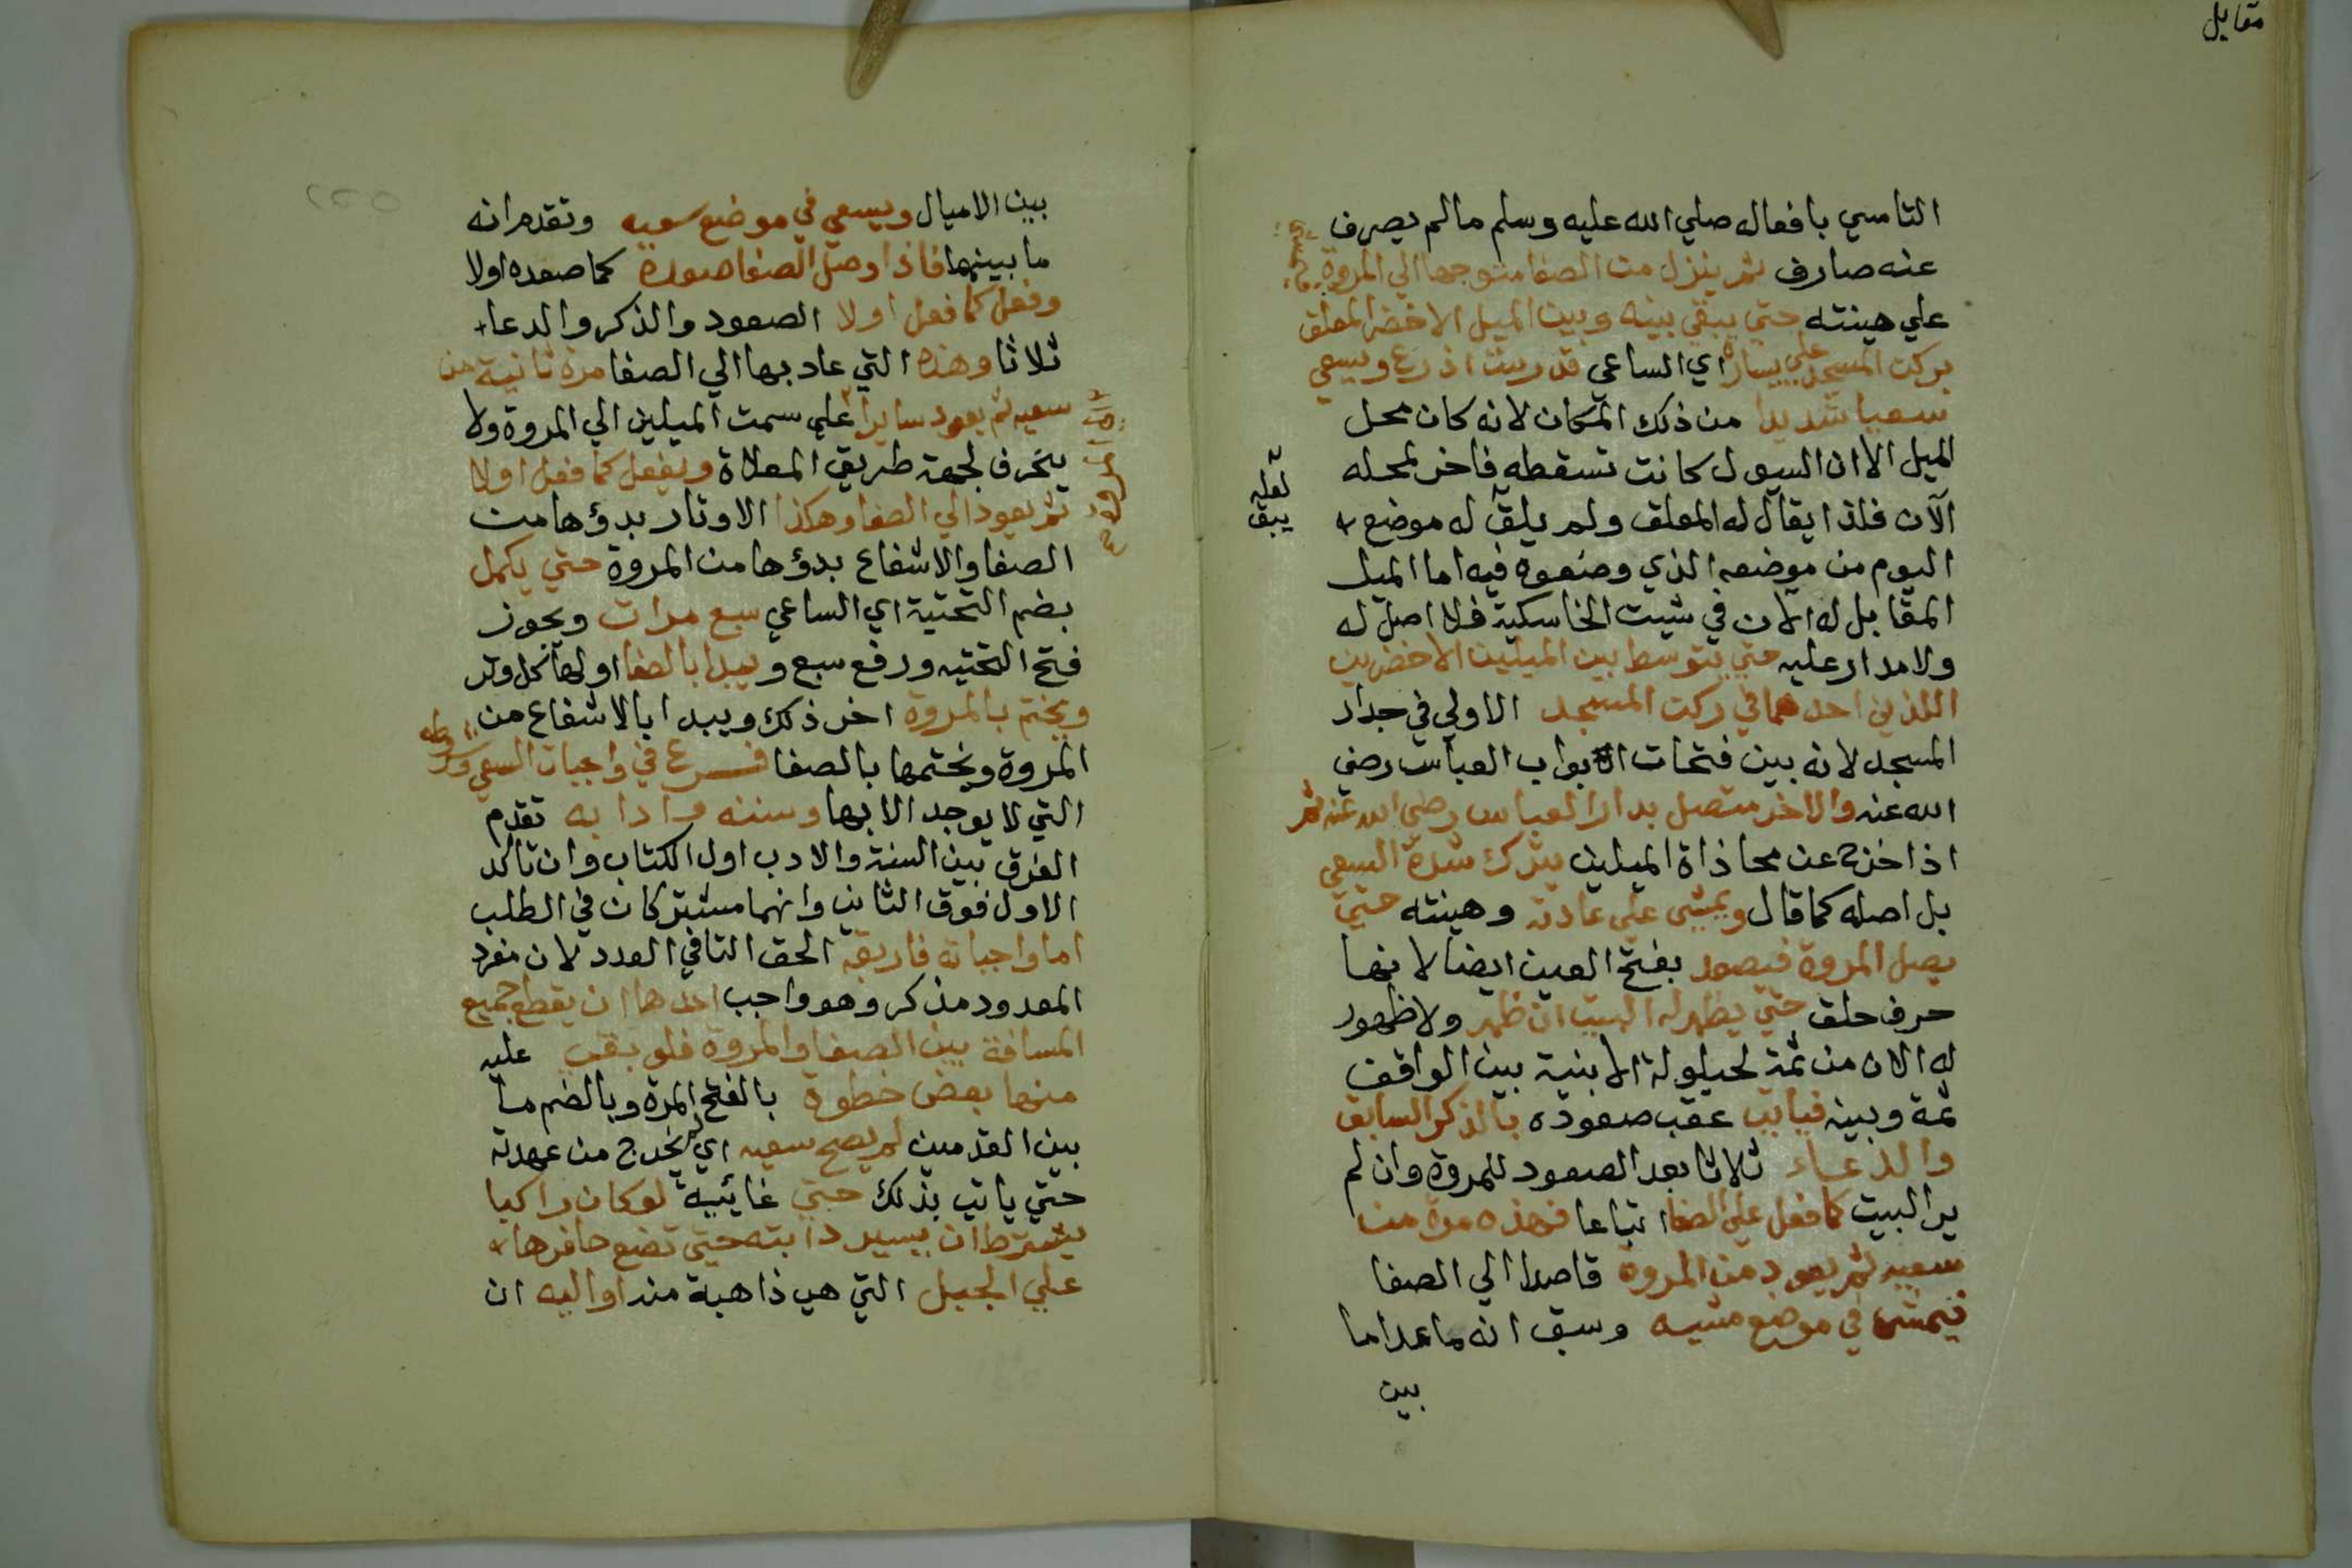 مقابل
التاسي بافعاله صلي الله عليه وسلم مالم يصرف
عنه صارف ثم ينزل من الصفا متوجها الي المروة
علي هينته حتي يبقي بينه وبين الميل الاخضر المعلق
بركن المسجد علي يساره اي الساعي قدر ست اذرع ويسعي
سعيا شديدا من ذلك المكان لانه كان محل
الميل الا ان السيول كانت تسقطه فاخر لمحله
الآن فلذا يقال له المعلق ولم يلق له موضع
لعله
يبق
اليوم من موضعه الذي وضعوه فيه اما الميل
المقابل له الآن في شيت الخاسكية فلا اصل له
ولا مدار عليه حتي يتوسط بين الميلين الاخضرين
اللذين احدهما في ركن المسجد الاولي في جدار
المسجد لانه بين فتحات ابواب العباس رضي
الله عنه والاخر متصل بدار العباس رضي الله عنه ثم
اذا خرج عن محاذاة الميلين يترك شدة السعي
بل اصله كما قال ويمشي علي عادته وهينته حتي
يصل المروة فيصعد بفتح العين ايضا لانها
حرف حلق حتي يظهر له البيت ان ظهر ولا ظهور
له الان من ثمة لحيلولة الابنية بين الواقف
ثمة وبينه فياتي عقب صعوده بالذكر السابق
والدعاء ثلاثا بعد الصعود للمروة وان لم
ير البيت كما فعل علي الصفا اتباعا فهذه مرة من
سعيه ثم يعود من المروة قاصدا الي الصفا
فيمشي في موضع مشيه وسبق انه ما عدا ما
بين
بين الاميال ويسعي في موضع سعيه وتقدم انه
ما بينهما فاذا وصل الصفا صعده كما صعده اولا
وفعل كما فعل اولا الصعود والذكر والدعاء
ثلاثا وهذه التي عاد بها الي الصفا مرة ثانية من
سعيه ثم يعود سايرا علي سمت الميلين الي المروة ولا
ينحرف لجهة طريق المعلاة ويفعل كما فعل اولا
ثم يعود الي الصفا وهكذا الاوتار بدؤها من
الصفا والاشفاع بدؤها من المروة حتي يكمل
بضم التحتية اي الساعي سبع مرات ويجوز
فتح التحتيه ورفع سبع ويبدا بالصفا اولها كل وتر
ويختم بالمروة اخر ذلك ويبدا بالاشفاع من
المروة ويختمها بالصفا فرع في واجبات السعي وشروطه
التي لا يوجد الا بها وسننه وادابه تقدم
الفرق بين السنة والادب اول الكتاب وان تاكد
الاول فوق الثاني وانهما مشتركان في الطلب
اما واجباته فاربعة الحق التا في العدد لان مفرد
المعدود مذكر وهو واجب احدها ان يقطع جميع
المسافة بين الصفا والمروة فلو بقي عليه
منها بعض خطوة بالفتح المرة وبالضم ما
بين القدمين لم يصح سعيه اي لم يخرج من عهدته
حتي ياتي بذلك حتي غائية لو كان راكبا
يشترط ان يسير دابته حتي تضع حافرها
علي الجبل التي هي ذاهبة منه او اليه ان